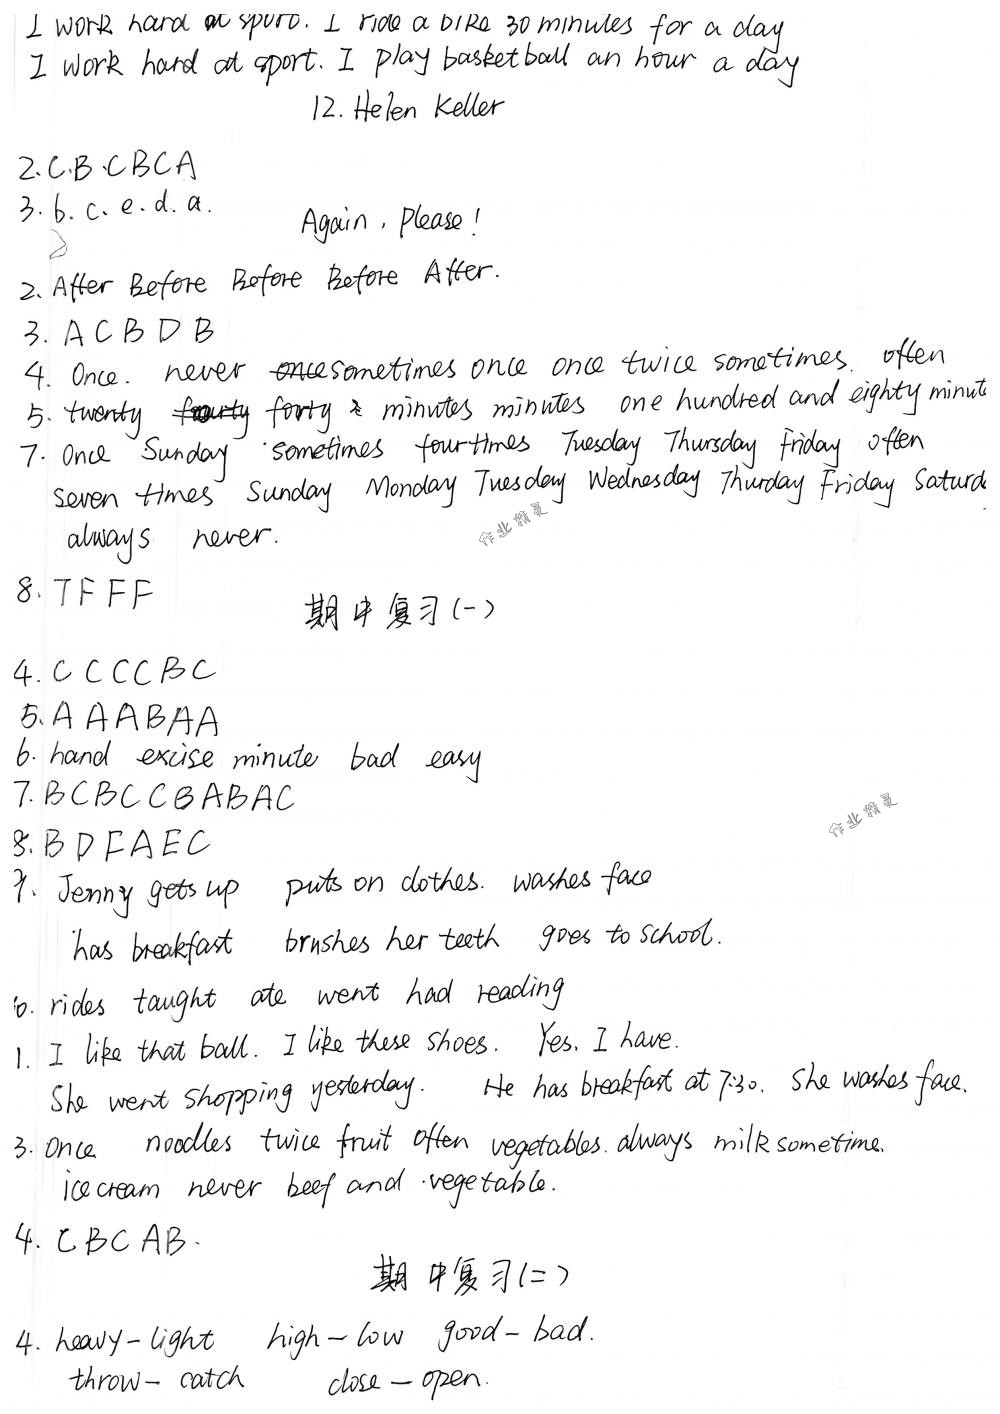 I work hard at sport. I ride a bike 30 minutes for a day
I work hard at sport. I play basketball an hour a day
12. Helen Keller
2. C.B.CBCA
3. b. c. e. d. a.
Again, Please!
2. After Before Before Before After.
3. A C B D B
4. Once. never once sometimes once once twice sometimes. often
5. twenty fourty forty minutes minutes one hundred and eighty minute
7. Once Sunday sometimes four times Tuesday Thursday Friday often
seven times Sunday Monday Tuesday Wednesday Thurday Friday Saturd
always never.
作业精灵
8. T F F F
期中复习(一)
4. C C C C B C
5. A A A B A A
6. hand excise minute bad easy
7. B C B C C B A B A C
作业精灵
8. B D F A E C
9. Jenny gets up puts on clothes. washes face
has breakfast brushes her teeth goes to school.
0. rides taught ate went had reading
1. I like that ball. I like these shoes. Yes. I have.
She went shopping yesterday. He has breakfast at 7:30. She washes face.
3. Once noodles twice fruit often vegetables. always milk sometime.
ice cream never beef and vegetable.
4. C B C A B.
期中复习(二)
4. heavy-light high-low good-bad.
throw-catch close-open.